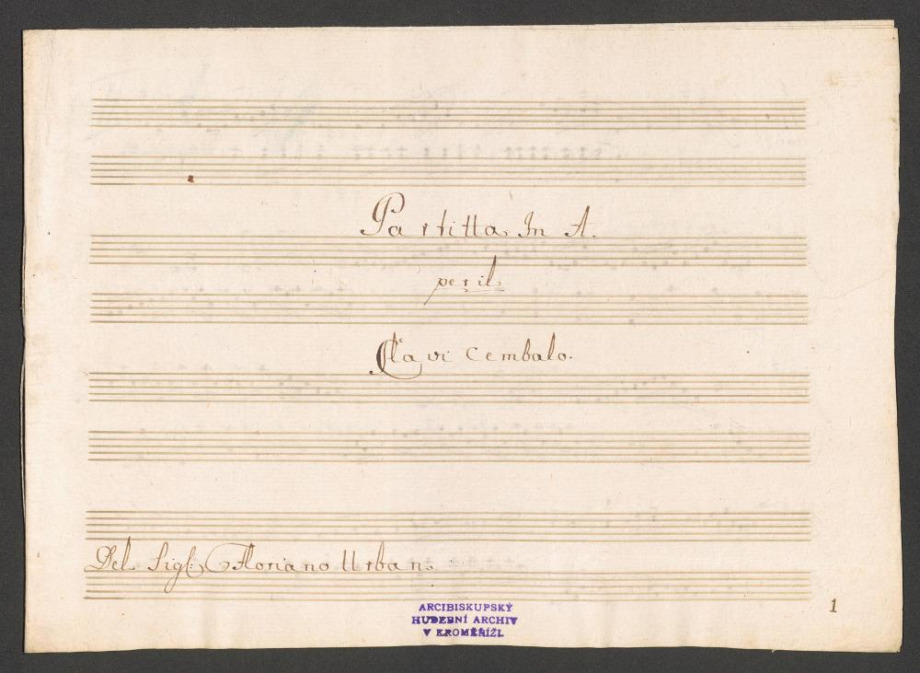 Partitta In A.
per il
Clavi Cembalo.
Del Sigl: Floriano Urban.
1
ARCIBISKUPSKÝ
HUDEBNÍ ARCHIV
V KROMĚŘÍŽI.